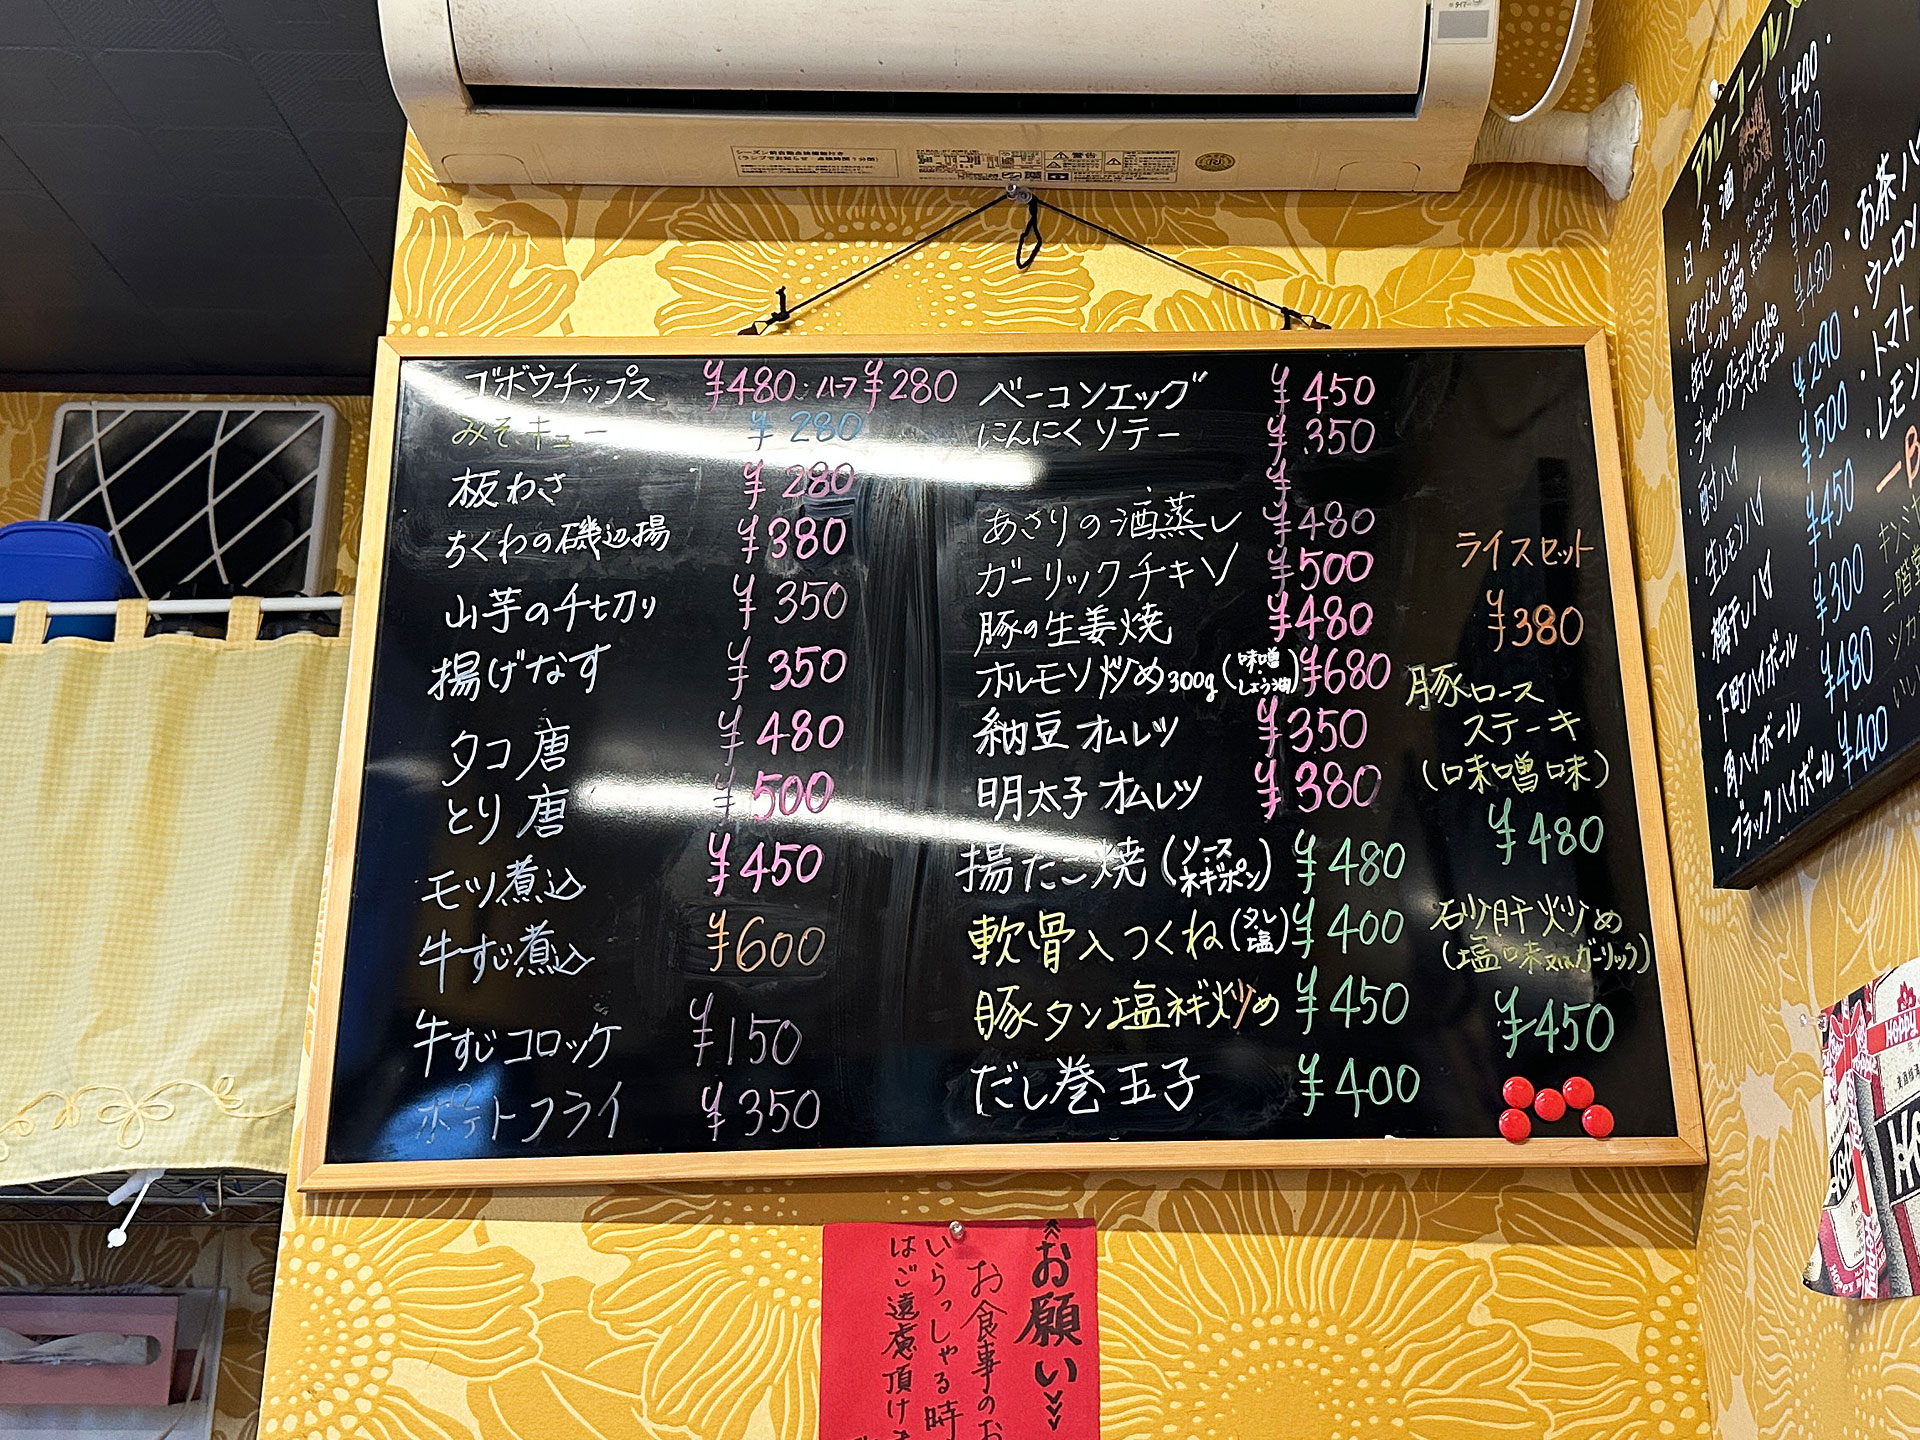 ゴボウチップス ¥480・ハーフ¥280
みそキュー ¥280
板わさ ¥280
ちくわの磯辺揚 ¥380
山芋の千切り ¥350
揚げなす ¥350
タコ唐 ¥480
とり唐 ¥500
モツ煮込 ¥450
牛すじ煮込 ¥600
牛すじコロッケ ¥150
ポテトフライ ¥350
ベーコンエッグ ¥450
にんにくソテー ¥350
¥
あさりの酒蒸し ¥480
ガーリックチキン ¥500
豚の生姜焼 ¥480
ホルモン炒め300g(味噌・しょう油)¥680
納豆オムレツ ¥350
明太子オムレツ ¥380
揚たこ焼(ソース ネギポン) ¥480
軟骨入つくね(タレ 塩)¥400
豚タン塩ネギ炒め ¥450
だし巻玉子 ¥400
ライスセット
¥380
豚ロース
ステーキ
(味噌味)
¥480
砂肝炒め
(塩味又はガーリック)
¥450
アルコール
・日本酒 ¥400
・中びんビール ¥500
・缶ビール 350 500
・ジャックダニエルCoke
ハイボール ¥480
・酎ハイ ¥290
・生レモンハイ ¥500
・梅干しハイ ¥450
・下町ハイボール ¥300
・角ハイボール ¥480
・ブラックハイボール ¥400
・お茶ハ
・ウーロン
・トマト
・レモン
キンミヤ
二階堂
お願い
お食事のお
いらっしゃる時
はご遠慮頂け
シーズン前自動点検機能付き
警告
Hoppy